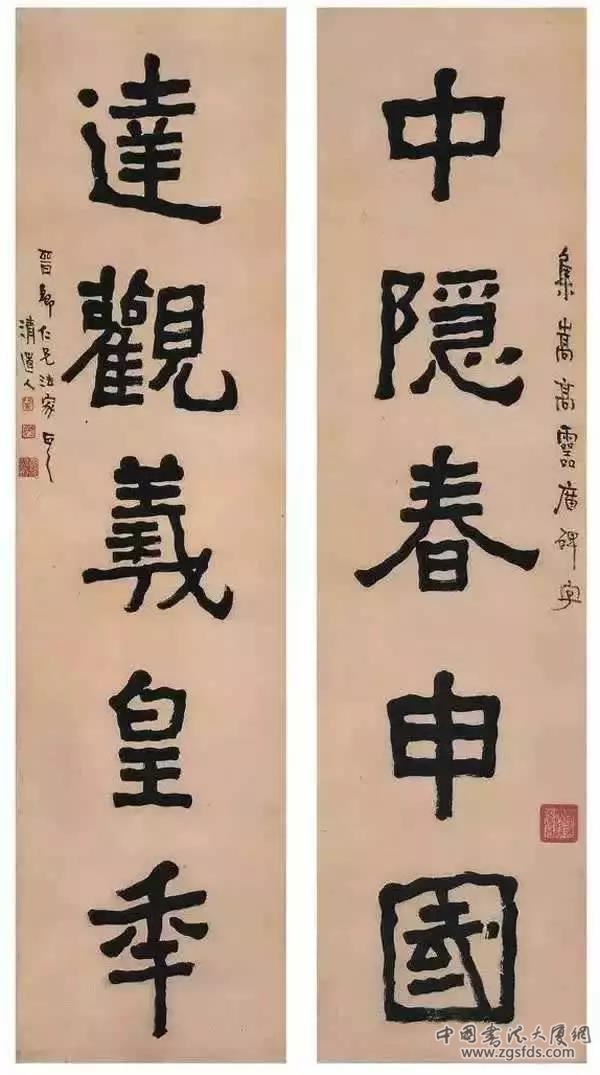 中隱春申國
集嵩高靈廟碑字
達觀羲皇年
晉卿仁兄法家正之
清道人
中國書法大廈網
www.zgsfds.com